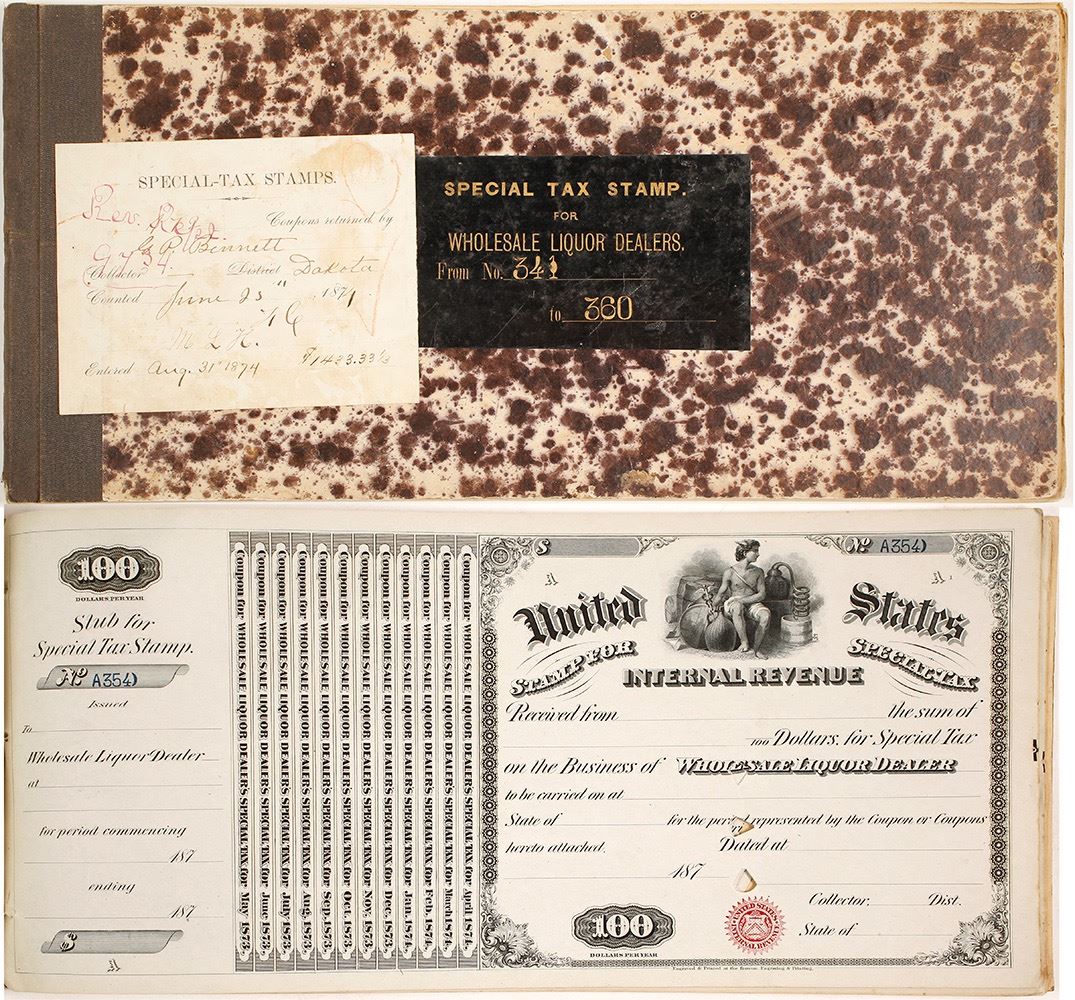 SPECIAL-TAX STAMPS.
Rev. Rep.
Coupons returned by
G P Bennett
9734
Collector District Dakota
Counted June 25" 1874
M L H.
Entered Aug. 31" 1874 $1433.33⅓
SPECIAL TAX STAMP.
FOR
WHOLESALE LIQUOR DEALERS.
From No. 341
to 360
100
DOLLARS PER YEAR
Stub for
Special Tax Stamp.
No A354)
Issued
To
Wholesale Liquor Dealer
at
for period commencing
187
ending
187
$
A
Coupon for WHOLESALE LIQUOR DEALER'S SPECIAL TAX for May 1873.
Coupon for WHOLESALE LIQUOR DEALER'S SPECIAL TAX for June 1873.
Coupon for WHOLESALE LIQUOR DEALER'S SPECIAL TAX for July 1873.
Coupon for WHOLESALE LIQUOR DEALER'S SPECIAL TAX for Aug. 1873.
Coupon for WHOLESALE LIQUOR DEALER'S SPECIAL TAX for Sep. 1873.
Coupon for WHOLESALE LIQUOR DEALER'S SPECIAL TAX for Oct. 1873.
Coupon for WHOLESALE LIQUOR DEALER'S SPECIAL TAX for Nov. 1873.
Coupon for WHOLESALE LIQUOR DEALER'S SPECIAL TAX for Dec. 1873.
Coupon for WHOLESALE LIQUOR DEALER'S SPECIAL TAX for Jan. 1874.
Coupon for WHOLESALE LIQUOR DEALER'S SPECIAL TAX for Feb. 1874.
Coupon for WHOLESALE LIQUOR DEALER'S SPECIAL TAX for March 1874.
Coupon for WHOLESALE LIQUOR DEALER'S SPECIAL TAX for April 1874.
$ No A354)
A A
United States
STAMP FOR SPECIAL-TAX
INTERNAL REVENUE
Received from the sum of
100 Dollars, for Special Tax
on the Business of WHOLESALE LIQUOR DEALER
to be carried on at
State of for the period represented by the Coupon or Coupons
hereto attached. Dated at
187
Collector, Dist.
State of
100
DOLLARS PER YEAR
UNITED STATES INTERNAL REVENUE
Engraved & Printed at the Bureau, Engraving & Printing.